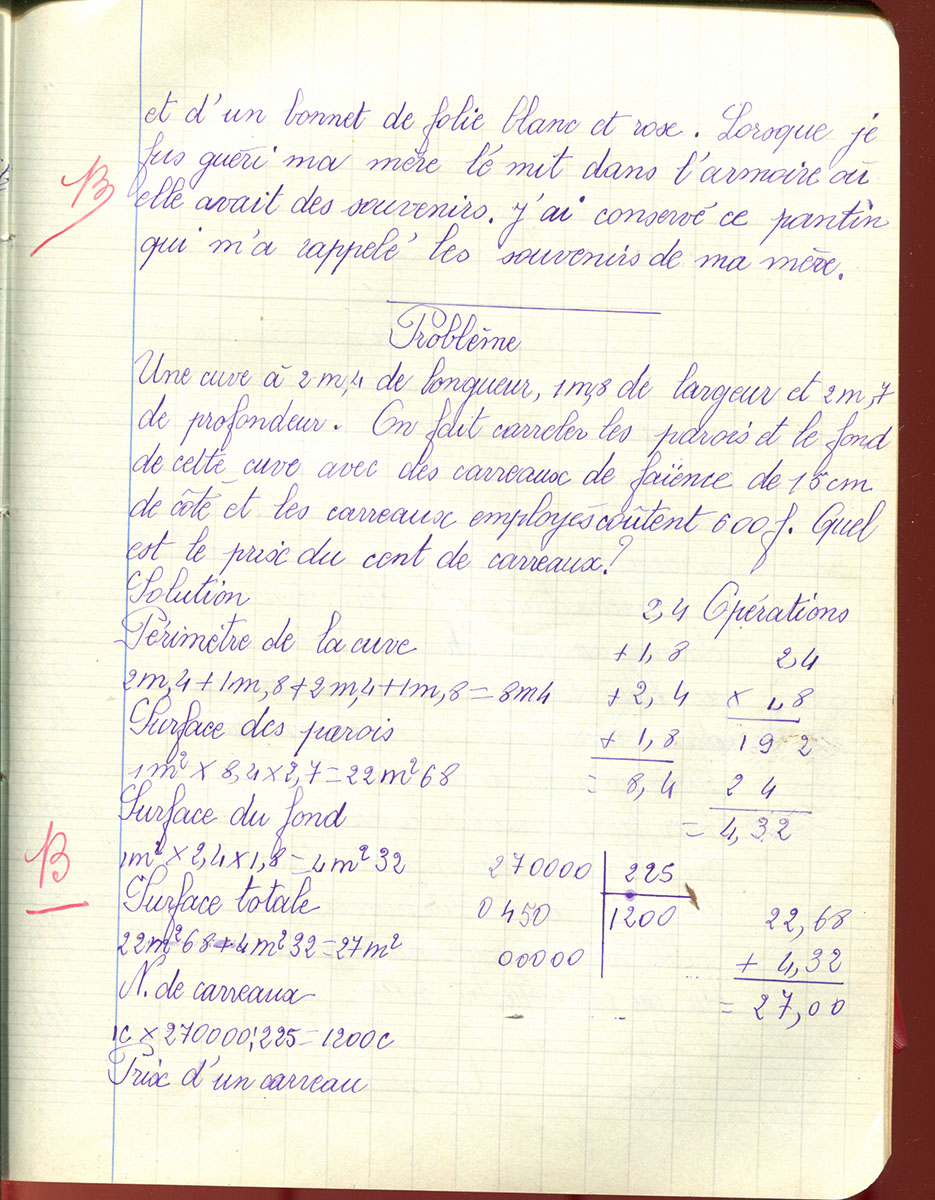 et d'un bonnet de folie blanc et rose. Lorsque je
fus guéri ma mère le mit dans l'armoire où
B
elle avait des souvenirs. J'ai conservé ce pantin
qui m'a rappelé les souvenirs de ma mère.
Problème
Une cuve à 2m,4 de longueur, 1m,8 de largeur et 2m,7
de profondeur. On fait carreler les parois et le fond
de cette cuve avec des carreaux de faïence de 15cm
de côté et les carreaux employés coûtent 600f. Quel
est le prix du cent de carreaux?
Solution
Périmètre de la cuve
2m,4+1m,8+2m,4+1m,8=8m4
Surface des parois
1m² × 8,4 × 2,7 = 22m²68
Surface du fond
B
1m² × 2,4 × 1,8 = 4m²32
Surface totale
22m²68+4m²32=27m²
N. de carreaux
1c × 270000:225=1200c
Prix d'un carreau
Opérations
2,4
+1,8
+2,4
+1,8
= 8,4
2,4
× 1,8
19 2
2 4
= 4,32
270000 | 225
0450 | 1200
00000
22,68
+ 4,32
= 27,00